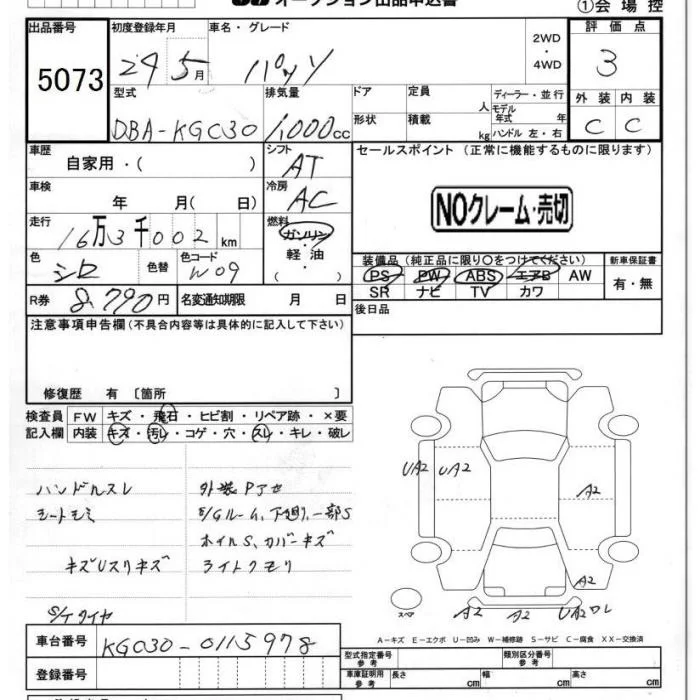 オークション出品申込書
①会場控
出品番号
5073
初度登録年月
24 5月
車名・グレード
パッソ
2WD
・
4WD
評価点
3
型式
DBA-KGC30
排気量
1,000cc
ドア
形状
定員
人
積載
kg
ディーラー・並行
モデル年式 年
ハンドル 左・右
外装 内装
C C
車歴
自家用・( )
シフト
AT
セールスポイント (正常に機能するものに限ります)
NOクレーム・売切
車検
年 月( 日)
冷房
AC
走行
16万3千002km
燃料
ガソリン
軽油
( )
色
シロ
色替
色コード
W09
装備品(純正品に限り○をつけてください)
PS PW ABS エアB AW
SR ナビ TV カワ
新車保証書
有・無
R券
8,790円
名変通知期限 月 日
後日品
注意事項申告欄(不具合内容等は具体的に記入して下さい)
修復歴 有〔箇所 〕
検査員記入欄
FW キズ・飛石・ヒビ割・リペア跡・×要
内装 キズ・汚レ・コゲ・穴・スレ・キレ・破レ
ハンドルスレ
シートモミ
キズUスリキズ
S/Tタイヤ
外装Pアセ
E/Gルーム、下廻り、一部S
ホイルS、カバーキズ
ライトクモリ
UA2 UA2
A2
A2
スペア
A2 A2 UA2ワレ
A-キズ E-エクボ U-凹み W-補修跡 S-サビ C-腐食 XX-交換済
車台番号
KGC30-0115978
登録番号
型式指定番号
参考
類別区分番号
参考
車庫証明用
参考
長さ cm
幅 cm
高さ cm